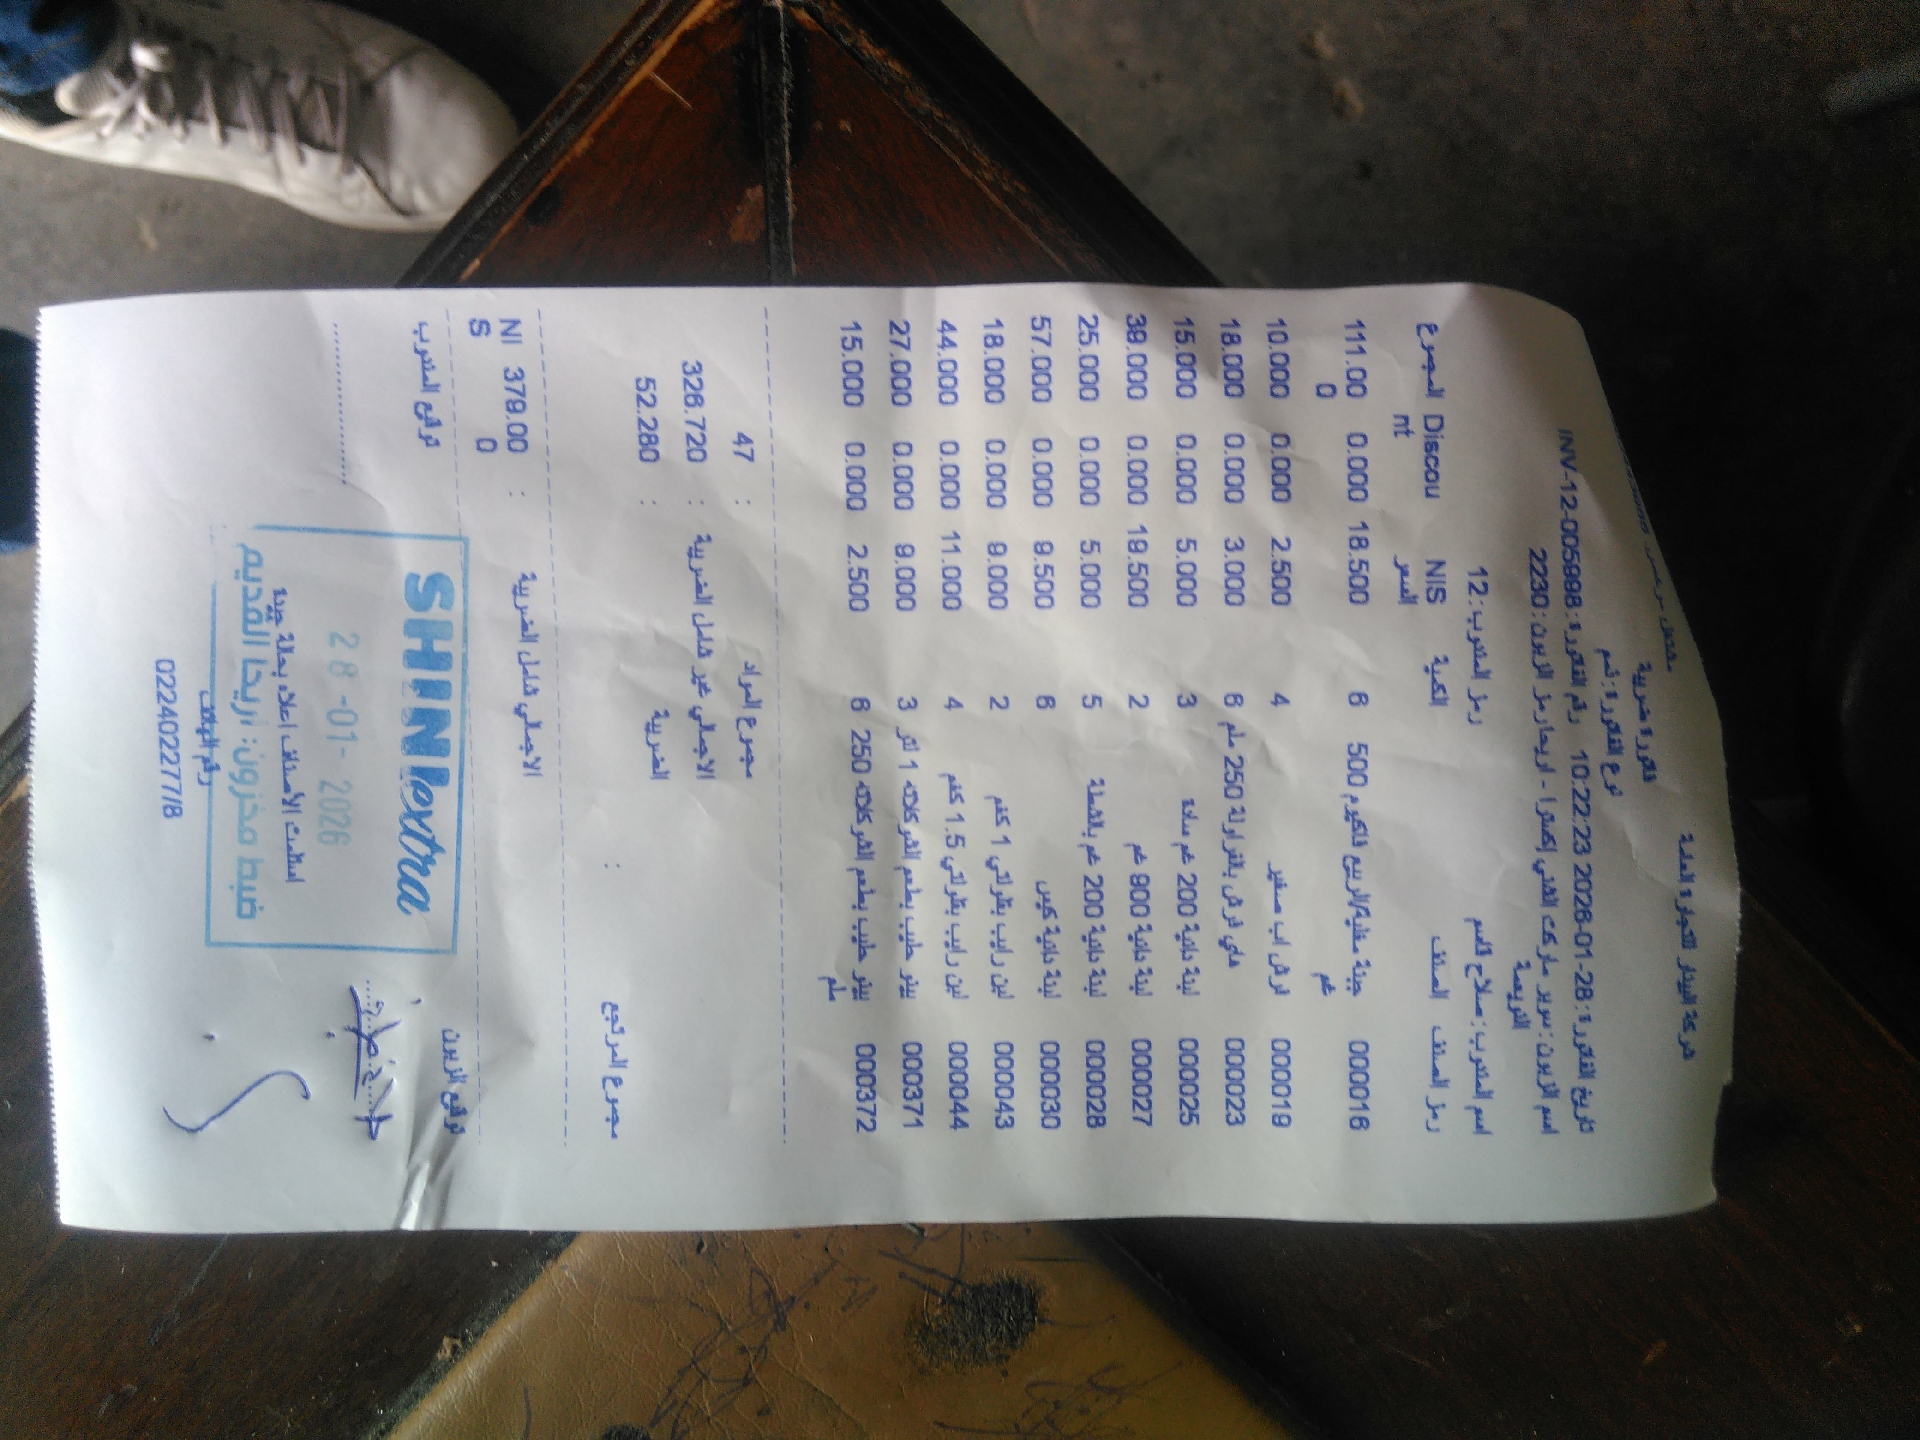 شركة البينار للتجارة العامة
مشتغل مرخص:
فاتورة ضريبية
نوع الفاتورة: ذمم
تاريخ الفاتورة: 2026-01-28 10:22:23 رقم الفاتورة: INV-12-005998
اسم الزبون: سوبر ماركت الشني إكسترا - اريحا رمز الزبون: 2230
اسم المندوب: صلاح قاسم رمز المندوب: 12
رمز الصنف الصنف الكمية NIS السعر Discount المجموع
000016 جبنة 500 غم 6 18.500 0.000 111.000
000019 صغير 4 2.500 0.000 10.000
000023 بالفراولة 250 ملم 6 3.000 0.000 18.000
000025 لبنة بلدية 200 غم سادة 3 5.000 0.000 15.000
000027 لبنة بلدية 900 غم 2 19.500 0.000 39.000
000028 لبنة بلدية 200 غم بالشطة 5 5.000 0.000 25.000
000030 لبنة بلدية كيس 6 9.500 0.000 57.000
000043 لبن رايب بقولتي 1 كغم 2 9.000 0.000 18.000
000044 لبن رايب بقولتي 1.5 كغم 4 11.000 0.000 44.000
000371 حليب بطعم الشوكلاته 1 لتر 3 9.000 0.000 27.000
000372 حليب بطعم الشوكلاته 250 ملم 6 2.500 0.000 15.000
مجموع المواد : 47
الاجمالي غير شامل الضريبة : 326.720
الضريبة : 52.280
مجموع المرتجع :
الاجمالي شامل الضريبة : 379.000 NIS
توقيع الزبون توقيع المندوب
SHINI extra
28-01-2026
استلمت الأصناف اعلاه بحالة جيدة
ضبط مخزون: اريحا القديم
رقم الهاتف
022402277/8